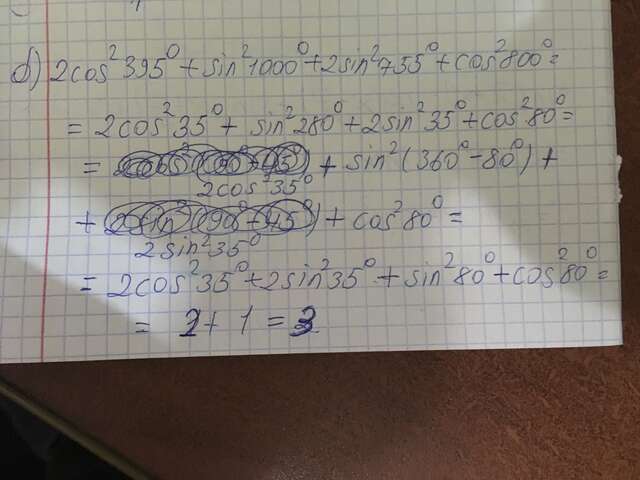 б) 2cos²395° + sin²1000° + 2sin²755° + cos²800° =
= 2cos²35° + sin²280° + 2sin²35° + cos²80° =
= + sin²(360° - 80°) +
2cos²35°
+ + cos²80° =
2sin²35°
= 2cos²35° + 2sin²35° + sin²80° + cos²80° =
= 2 + 1 = 3